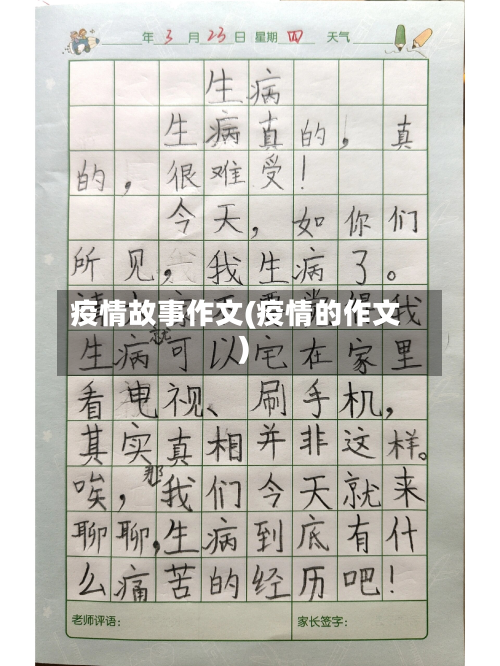 年 3 月 23 日 星期 四 天气
生病
生病真的，真
的，很难受！
今天，如你们
所见，我生病了。
疫情故事作文(疫情的作文
)
我
生病就可以宅在家里
看电视、刷手机，
其实真相并非这样。
唉，那我们今天就来
聊聊，生病到底有什
么痛苦的经历吧！
老师评语： 家长签字：